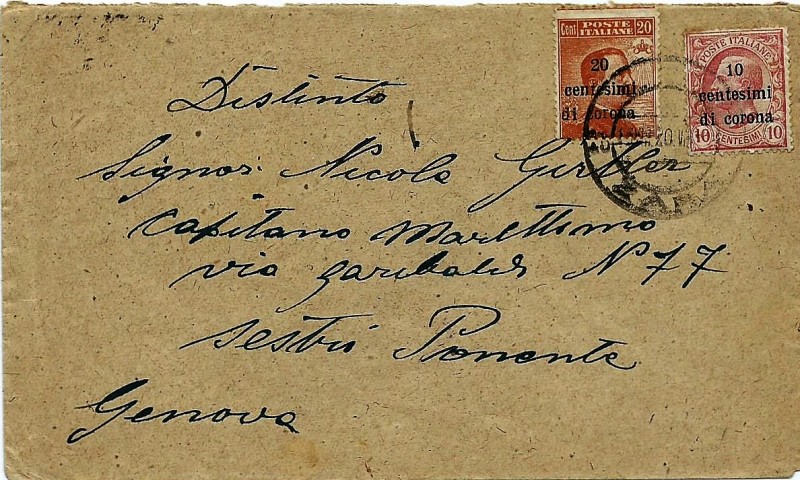 Cent POSTE ITALIANE 20
20
centesimi
di corona
POSTE ITALIANE
10
centesimi
di corona
10 CENTESIMI 10
ZARA
Distinto
Signor Nicola
Capitano Marettimo
via garibaldi N 77
Sestri Ponente
Genova